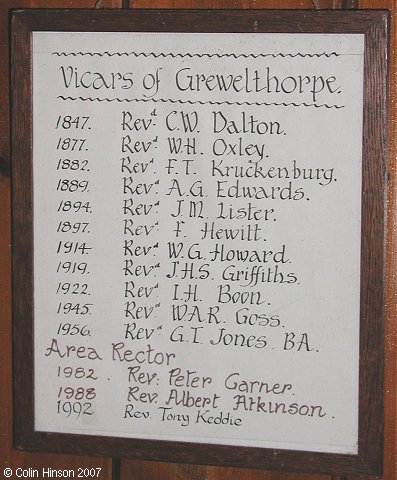 Vicars of Grewelthorpe.
1847. Revd. C.W. Dalton.
1877. Revd. W.H. Oxley.
1882. Revd. F.T. Kruckenburg.
1889. Revd. A.G. Edwards.
1894. Revd. J.M. Lister.
1897. Revd. F. Hewitt.
1914. Revd. W.G. Howard.
1919. Revd. J.H.S. Griffiths.
1922. Revd. I.H. Boon.
1945. Revd. W.A.R. Goss.
1956. Revd. G.T. Jones. BA.
Area Rector
1982. Rev: Peter Garner.
1988 Rev. Albert Atkinson.
1992 Rev Tony Keddie
© Colin Hinson 2007